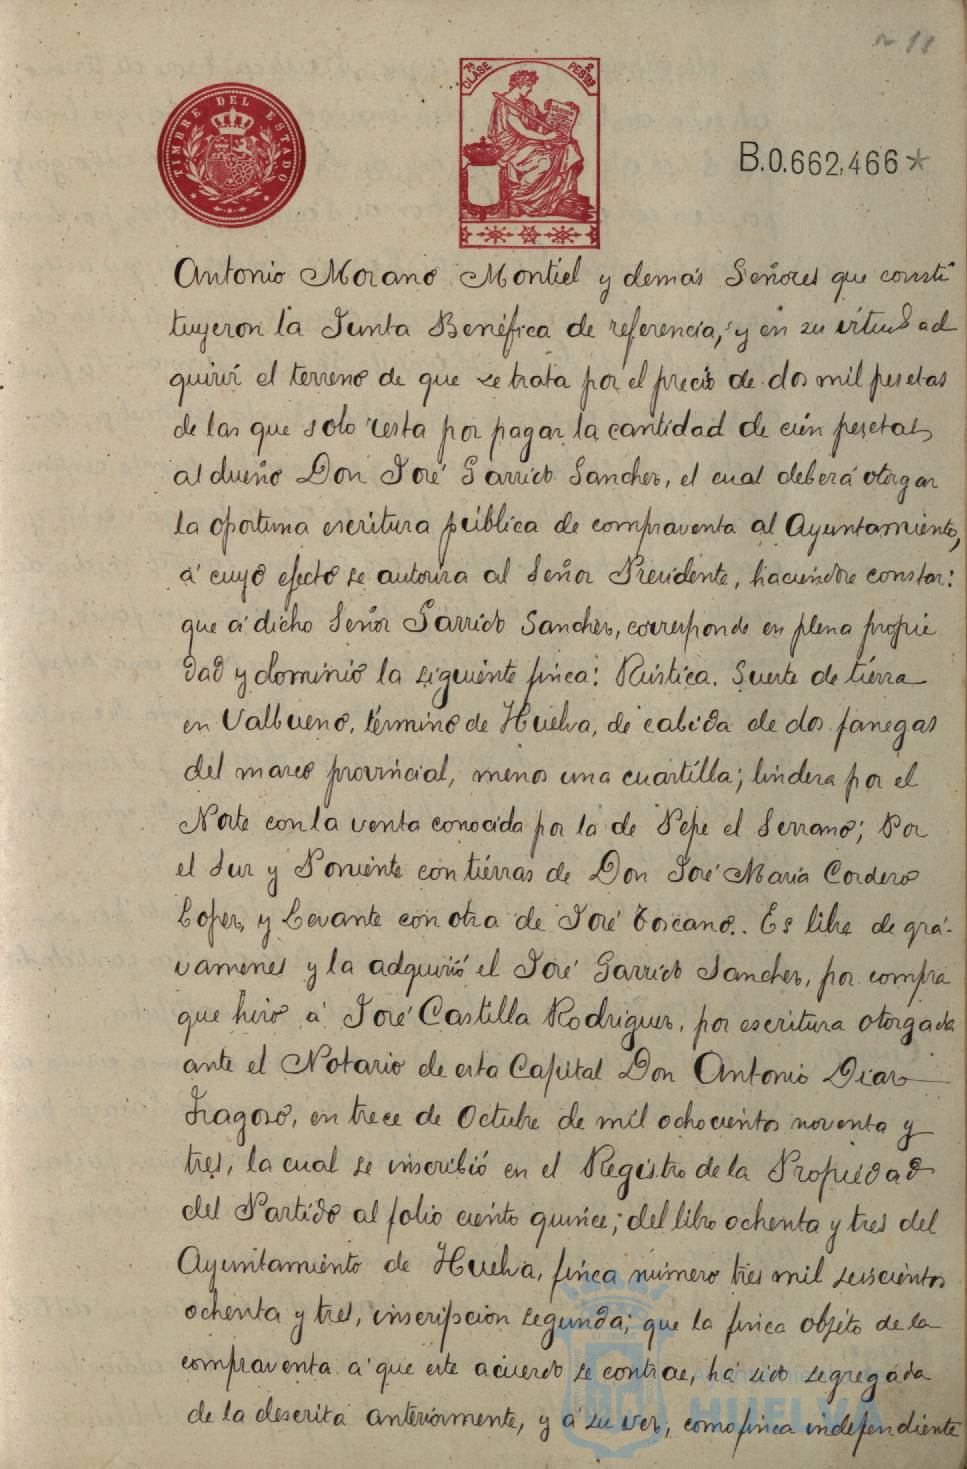 11
TIMBRE DEL ESTADO
7ª CLASE
2 PESTAS
B.0.662,466*
Antonio Morano Montiel y demás Señores que consti
tuyeron la Junta Benéfica de referencia, y en su virtud ad
quirir el terreno de que se trata por el precio de dos mil pesetas
de las que solo resta por pagar la cantidad de cien pesetas
al dueño Don José Garrido Sanchez, el cual deberá otorgar
la oportuna escritura pública de compraventa al Ayuntamiento,
á cuyo efecto se autoriza al Señor Presidente, haciendose constar:
que á dicho Señor Garrido Sanchez, corresponde en plena propie
dad y dominio la siguiente finca: Rústica. Suerte de tierra
en Valbueno, término de Huelva, de cabida de dos fanegas
del marco provincial, menos una cuartilla; lindera por el
Norte con la venta conocida por la de Pepe el Serrano; Por
el Sur y Poniente con tierras de Don José María Cordero
Lopez, y Levante con otra de José Toscano. Es libre de grá-
vamenes y la adquirió el José Garrido Sanchez, por compra
que hizo á José Castilla Rodriguez, por escritura otorgada
ante el Notario de esta Capital Don Antonio Diaz
Fragoso, en trece de Octubre de mil ochocientos noventa y
tres, la cual se inscribió en el Registro de la Propiedad
del Partido al folio ciento quince, del libro ochenta y tres del
Ayuntamiento de Huelva, finca número tres mil seiscientos
ochenta y tres, inscripcion segunda; que la finca objeto de la
compraventa á que este acuerdo se contrae, há sido segregada
de la descrita anteriormente, y á su vez, como finca independiente
HUELVA